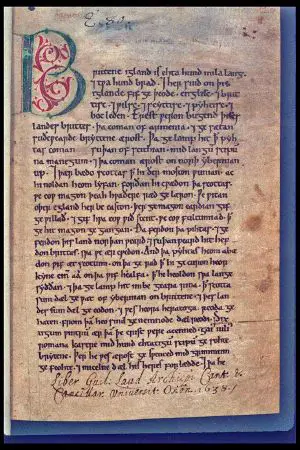 Brittene igland is ehta hund mila lang.
⁊ twa hund brad. ⁊ her sind on þis
iglande fif geþeode. englisc. ⁊ brit
tisc. ⁊ wilsc. ⁊ scyttisc. ⁊ pyhtisc. ⁊
boc leden. Erest weron bugend þises
landes brittes. þa coman of armenia. ⁊ gesætan
suðewearde bryttene ærost. Þa gelamp hit ꝥ pyh
tas coman suþan of scithian. mid langum scipum
na manegum. ⁊ þa coman ærost on norþ ybernian
up. ⁊ þær bædo scottas ꝥ hi ðer moston wunian. ac
hi noldan heom lyfan. forðan hi cwædon þa scottas.
we eow magon þeah hwaðere ræd gelæron. We witan
oþer egland her be easton. þer ge magon eardian gif
ge willað. ⁊ gif hwa eow wið stent. we eow fultumiað.
ꝥ ge hit magon gegangan. Ða ferdon þa pihtas. ⁊ ge
ferdon þis land norþan weard. ⁊ suþan weard hit hef
don brittas. swa we ær cwedon. And þa pyhtas heom abæ
don wif æt scottum. on þa gerad ꝥ hi gecuron heora
kyne cinn aa on þa wif healfa. ꝥ hi heoldon swa lange
syððan. ⁊ þa gelamp hit imbe geara rina. ꝥ scotta
sum dæl gewat of ybernian on brittene. ⁊ þes lan
des sum dæl geeodon. ⁊ wes heora heratoga reoda ge
haten. From þam heo sind genemnode dæl reodi. Six
tigum wintrum ær þam þe crist were acenned. gaius iulius
romana kasere mid hund ehtatigum scipum gesohte
brytene. Þer he wes ærost geswenced mid grimmum
gefeohte. ⁊ micelne dæl his heres forlædde. ⁊ þa he
Liber Guil: Laud Archiepi Cant: &
Cancellar. Universit. Oxon. 1638.